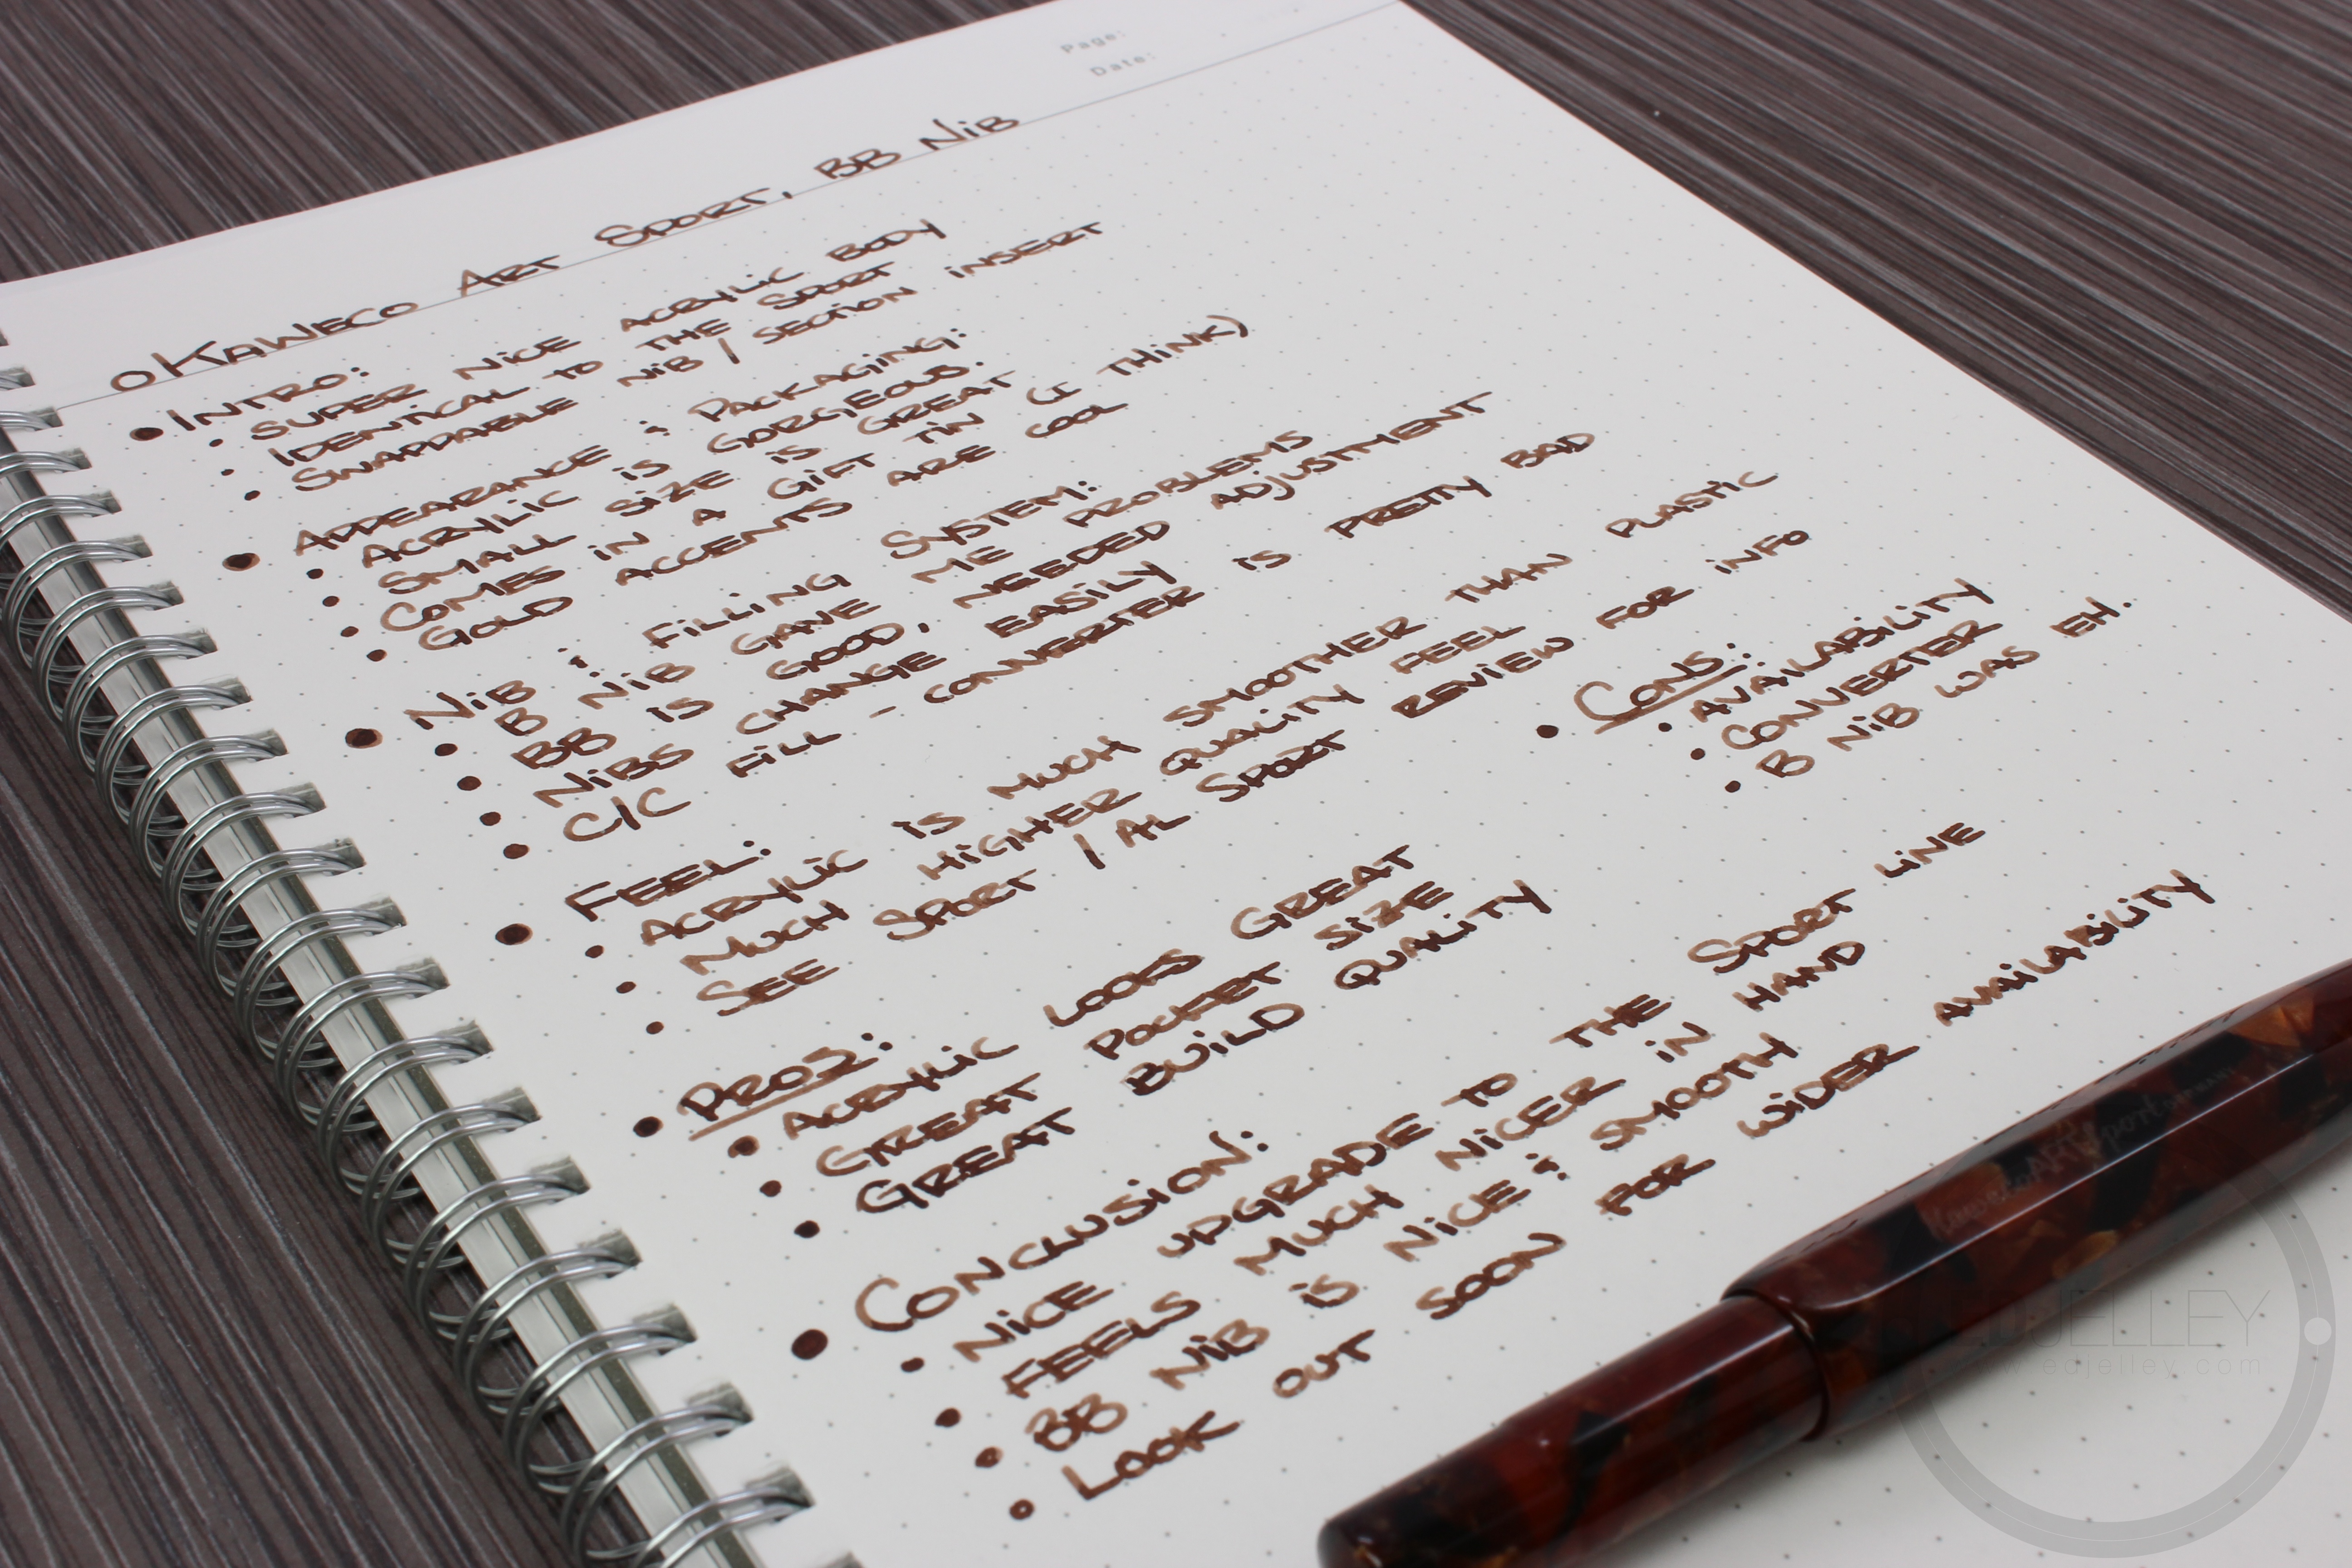 Page:
Date:
KAWECO ART SPORT, BB NiB
INTRO:
SUPER NICE ACRYLIC BODY
IDENTICAL TO THE SPORT
SWAPPABLE NiB / SECTION INSERT
APPEARANCE & PACKAGING:
ACRYLIC IS GORGEOUS.
SMALL SIZE IS GREAT
COMES IN A GIFT TIN (I THINK)
GOLD ACCENTS ARE COOL
NiB & FILLING SYSTEM:
B NiB GAVE ME PROBLEMS
BB IS GOOD, NEEDED ADJUSTMENT
NiBS CHANGE EASILY
C/C FILL - CONVERTER IS PRETTY BAD
FEEL:
ACRYLIC IS MUCH SMOOTHER THAN PLASTIC
MUCH HIGHER QUALITY FEEL
SEE SPORT / AL SPORT REVIEW FOR INFO
PROS:
ACRYLIC LOOKS GREAT
GREAT POCKET SIZE
GREAT BUILD QUALITY
CONS:
AVAILABILITY
CONVERTER
B NiB WAS EH.
CONCLUSION:
NICE UPGRADE TO THE SPORT LINE
FEELS MUCH NICER IN HAND
BB NiB IS NICE & SMOOTH
LOOK OUT SOON FOR WIDER AVAILABILITY
Kaweco ART Sport Germany
EDJELLEY
www.edjelley.com